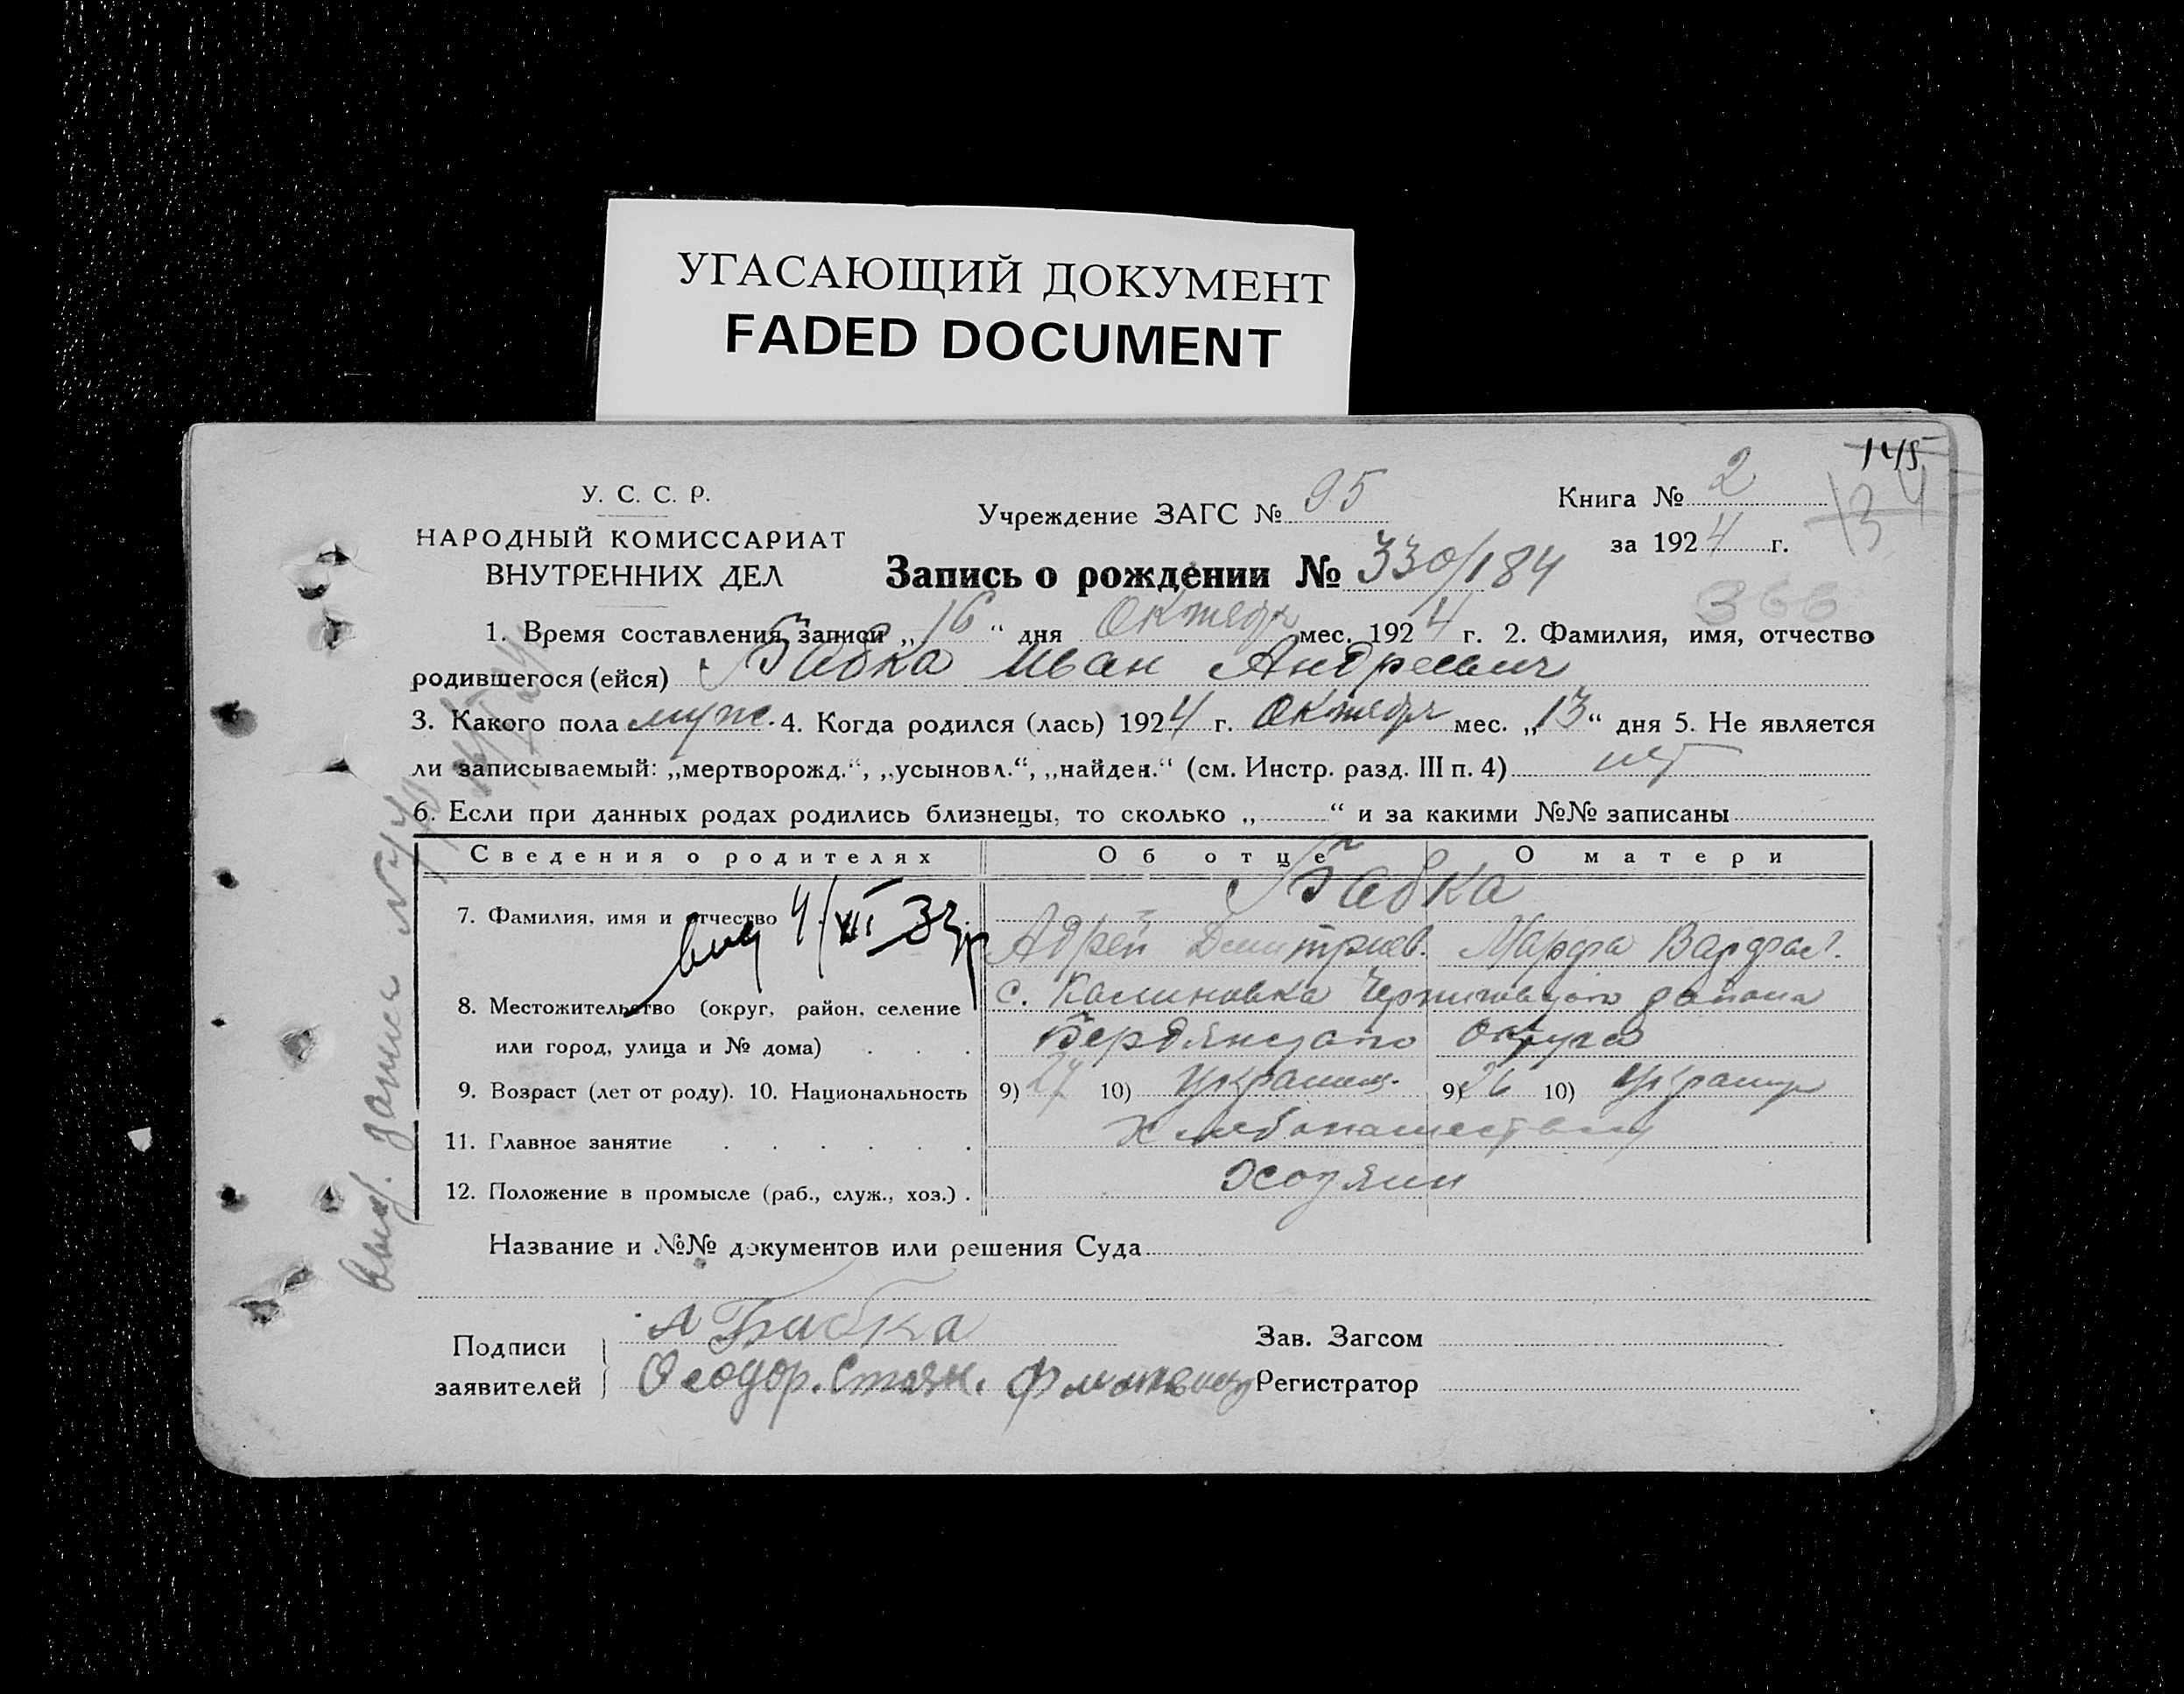 УГАСАЮЩИЙ ДОКУМЕНТ
FADED DOCUMENT
145
134
У. С. С. Р.
НАРОДНЫЙ КОМИССАРИАТ
ВНУТРЕННИХ ДЕЛ
Учреждение ЗАГС № 95
Книга № 2
за 1924 г.
Запись о рождении № 330/184
366
1. Время составления записи „16“ дня Октябр мес. 1924 г. 2. Фамилия, имя, отчество
родившегося (ейся) Бабка Иван Андреевич
3. Какого пола муж. 4. Когда родился (лась) 1924 г. Октябр мес. „13“ дня 5. Не является
ли записываемый: „мертворожд.“, „усыновл.“, „найден.“ (см. Инстр. разд. III п. 4) нет
6. Если при данных родах родились близнецы, то сколько „ “ и за какими №№ записаны
Сведения о родителях Об отце О матери
Бабка
7. Фамилия, имя и отчество
Адрей Дмитриев. Марфа Варфол.
8. Местожительство (округ, район, селение с. Калиновка Черниговского района
или город, улица и № дома) . . . Бердянского округа
9. Возраст (лет от роду). 10. Национальность 9) 27 10) Украинц. 9) 26 10) Украин
11. Главное занятие . . . . . . Хлебопашество
12. Положение в промысле (раб., служ., хоз.) . Хозяин
Название и №№ документов или решения Суда
Подписи
заявителей
А Бабка
Феодор. Стоян.
Зав. Загсом
Регистратор